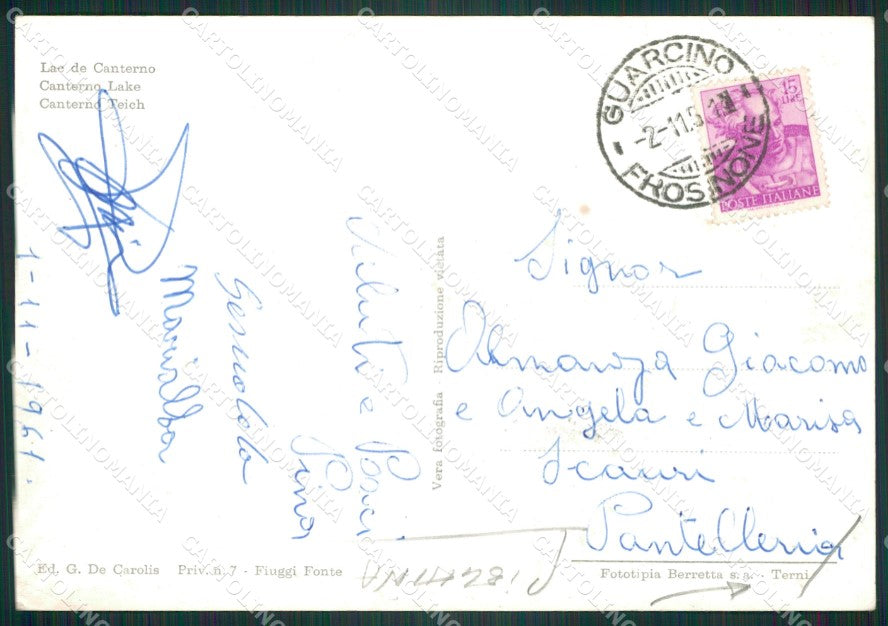 Lae de Canterno
Canterno Lake
Canterno Teich
GUARCINO
-2-11.5
FROSINONE
15
LIRE
POSTE ITALIANE
1-11-1961.
Marialba
Saluti e Baci
Pina
Vera fotografia - Riproduzione vietata
Signor
Almanza Giacomo
e Angela e Marisa
Scauri
Pantelleria
Ed. G. De Carolis Priv. n. 7 - Fiuggi Fonte
Fototipia Berretta s. a. - Terni
CARTOLINOMANIA